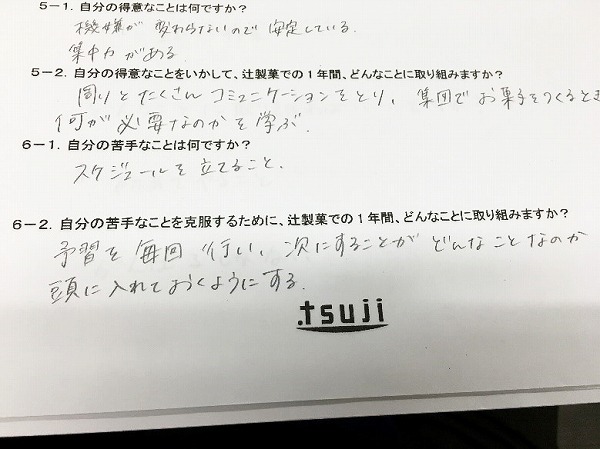 5－1. 自分の得意なことは何ですか？
機嫌が 変わらないので 安定している.
集中力がある.
5－2. 自分の得意なことをいかして、辻製菓での１年間、どんなことに取り組みますか？
周りとたくさん コミュニケーションをとり、集団で お菓子をつくるとき
何が必要なのかを学ぶ.
6－1. 自分の苦手なことは何ですか？
スケジュールを立てること.
6－2. 自分の苦手なことを克服するために、辻製菓での１年間、どんなことに取り組みますか？
予習を毎回 行い、次にすることが どんなことなのか
頭に入れておくようにする.
.tsuji